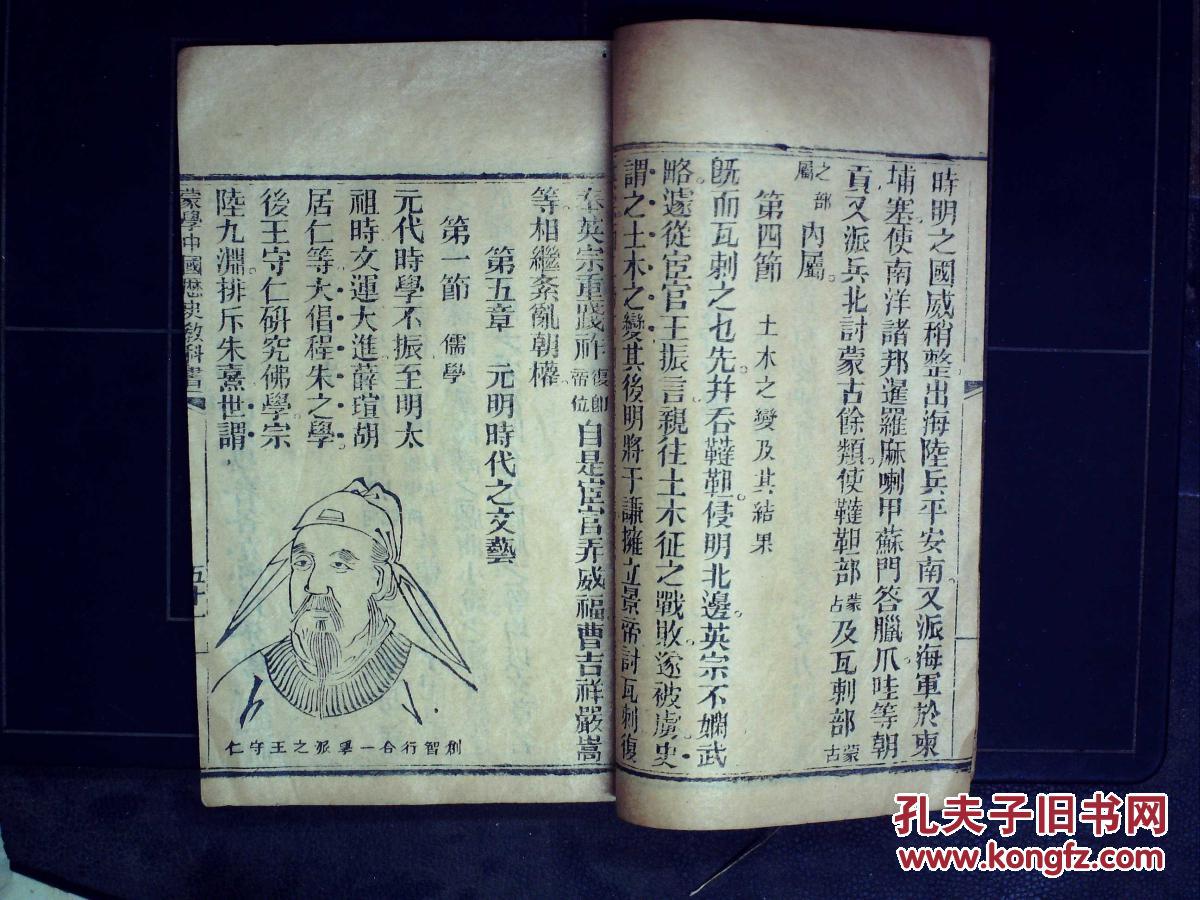 時明之國威稍整出海陸兵平安南又派海軍於柬
埔塞使南洋諸邦暹羅麻喇甲蘇門答臘爪哇等朝
貢又派兵北討蒙古餘類使韃靼部蒙古及瓦剌部蒙古
之部屬內屬
第四節 土木之變及其結果
既而瓦剌之也先并吞韃靼侵明北邊英宗不嫻武
略遽從宦官王振言親往土木征之戰敗遂被虜史
謂之土木之變其後明將于謙擁立景帝討瓦剌復
奉英宗重踐祚復卽帝位自是宦官弄威福曹吉祥嚴嵩
等相繼紊亂朝權
第五章 元明時代之文藝
第一節 儒學
元代時學不振至明太
祖時文運大進薛瑄胡
居仁等大倡程朱之學
後王守仁硏究佛學宗
陸九淵排斥朱熹世謂
創智行合一學派之王守仁
蒙學中國歷史教科書
五十
孔夫子旧书网
www.kongfz.com